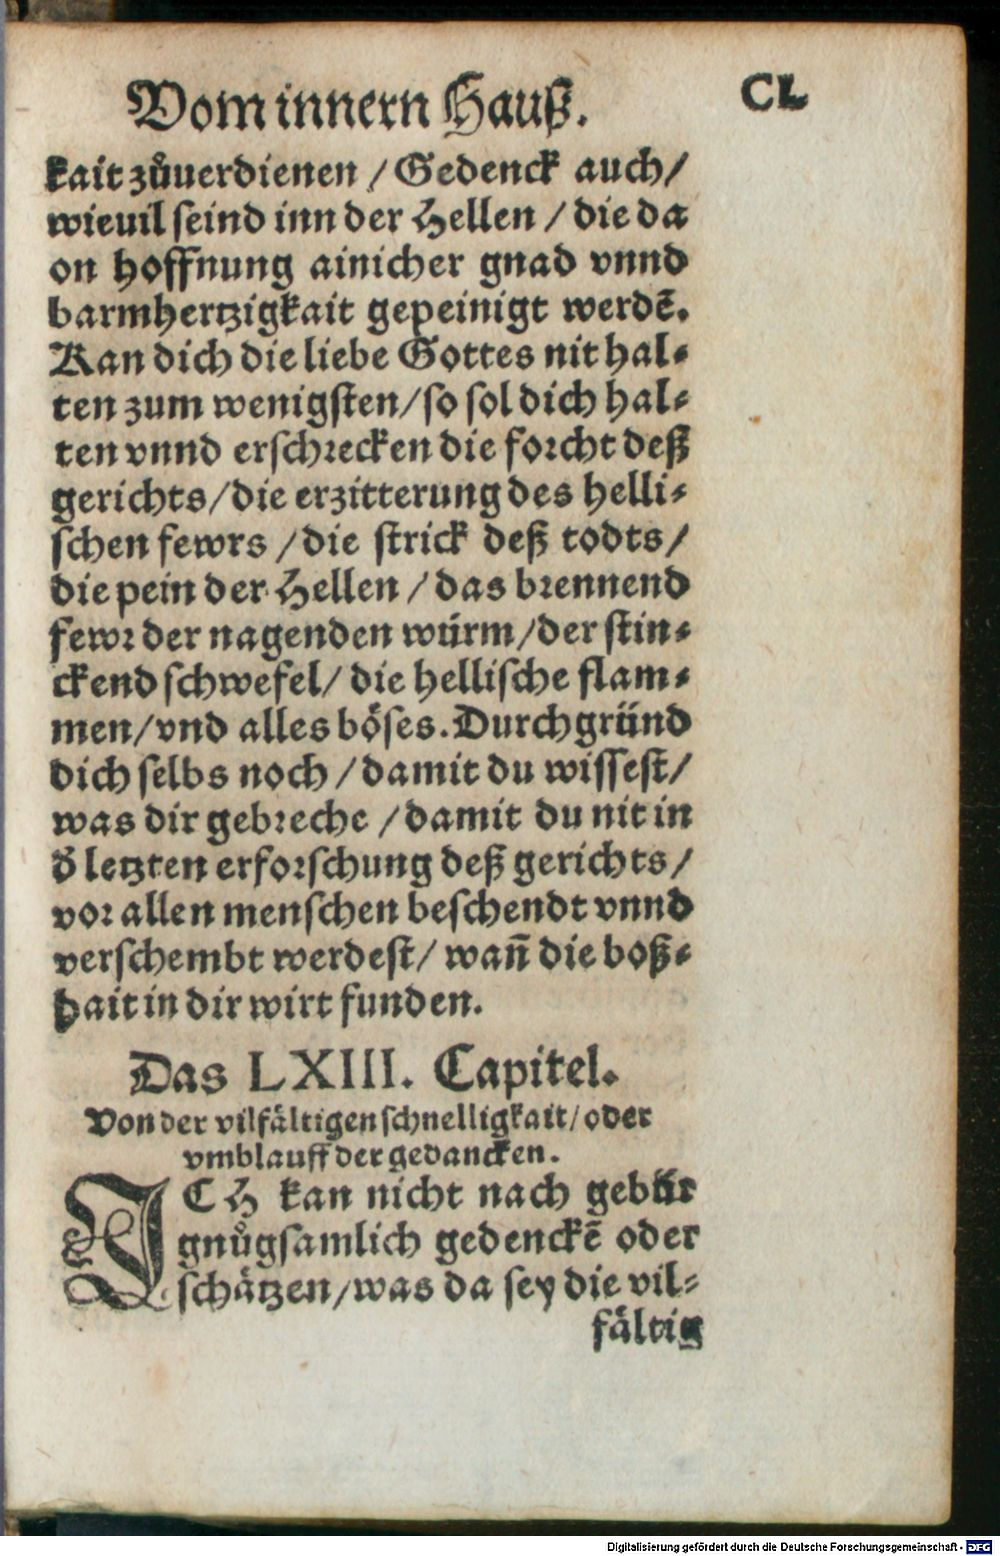 Vom innern Hauß. CL
kait zůuerdienen / Gedenck auch /
wieuil seind inn der Hellen / die da
on hoffnung ainicher gnad vnnd
barmhertzigkait gepeinigt werdẽ.
Kan dich die liebe Gottes nit hal⸗
ten zum wenigsten / so sol dich hal⸗
ten vnnd erschrecken die forcht deß
gerichts / die erzitterung des helli⸗
schen fewrs / die strick deß todts /
die pein der Hellen / das brennend
fewr der nagenden würm / der stin⸗
ckend schwefel / die hellische flam⸗
men / vnd alles böses. Durchgründ
dich selbs noch / damit du wissest /
was dir gebreche / damit du nit in
d̃ letzten erforschung deß gerichts /
vor allen menschen beschendt vnnd
verschembt werdest / wañ die boß⸗
hait in dir wirt funden.
Das LXIII. Capitel.
Von der vilfältigen schnelligkait / oder
vmblauff der gedancken.
ICH kan nicht nach gebür
gnůgsamlich gedenckẽ oder
schätzen / was da sey die vil⸗
fältig
Digitalisierung gefördert durch die Deutsche Forschungsgemeinschaft - DFG